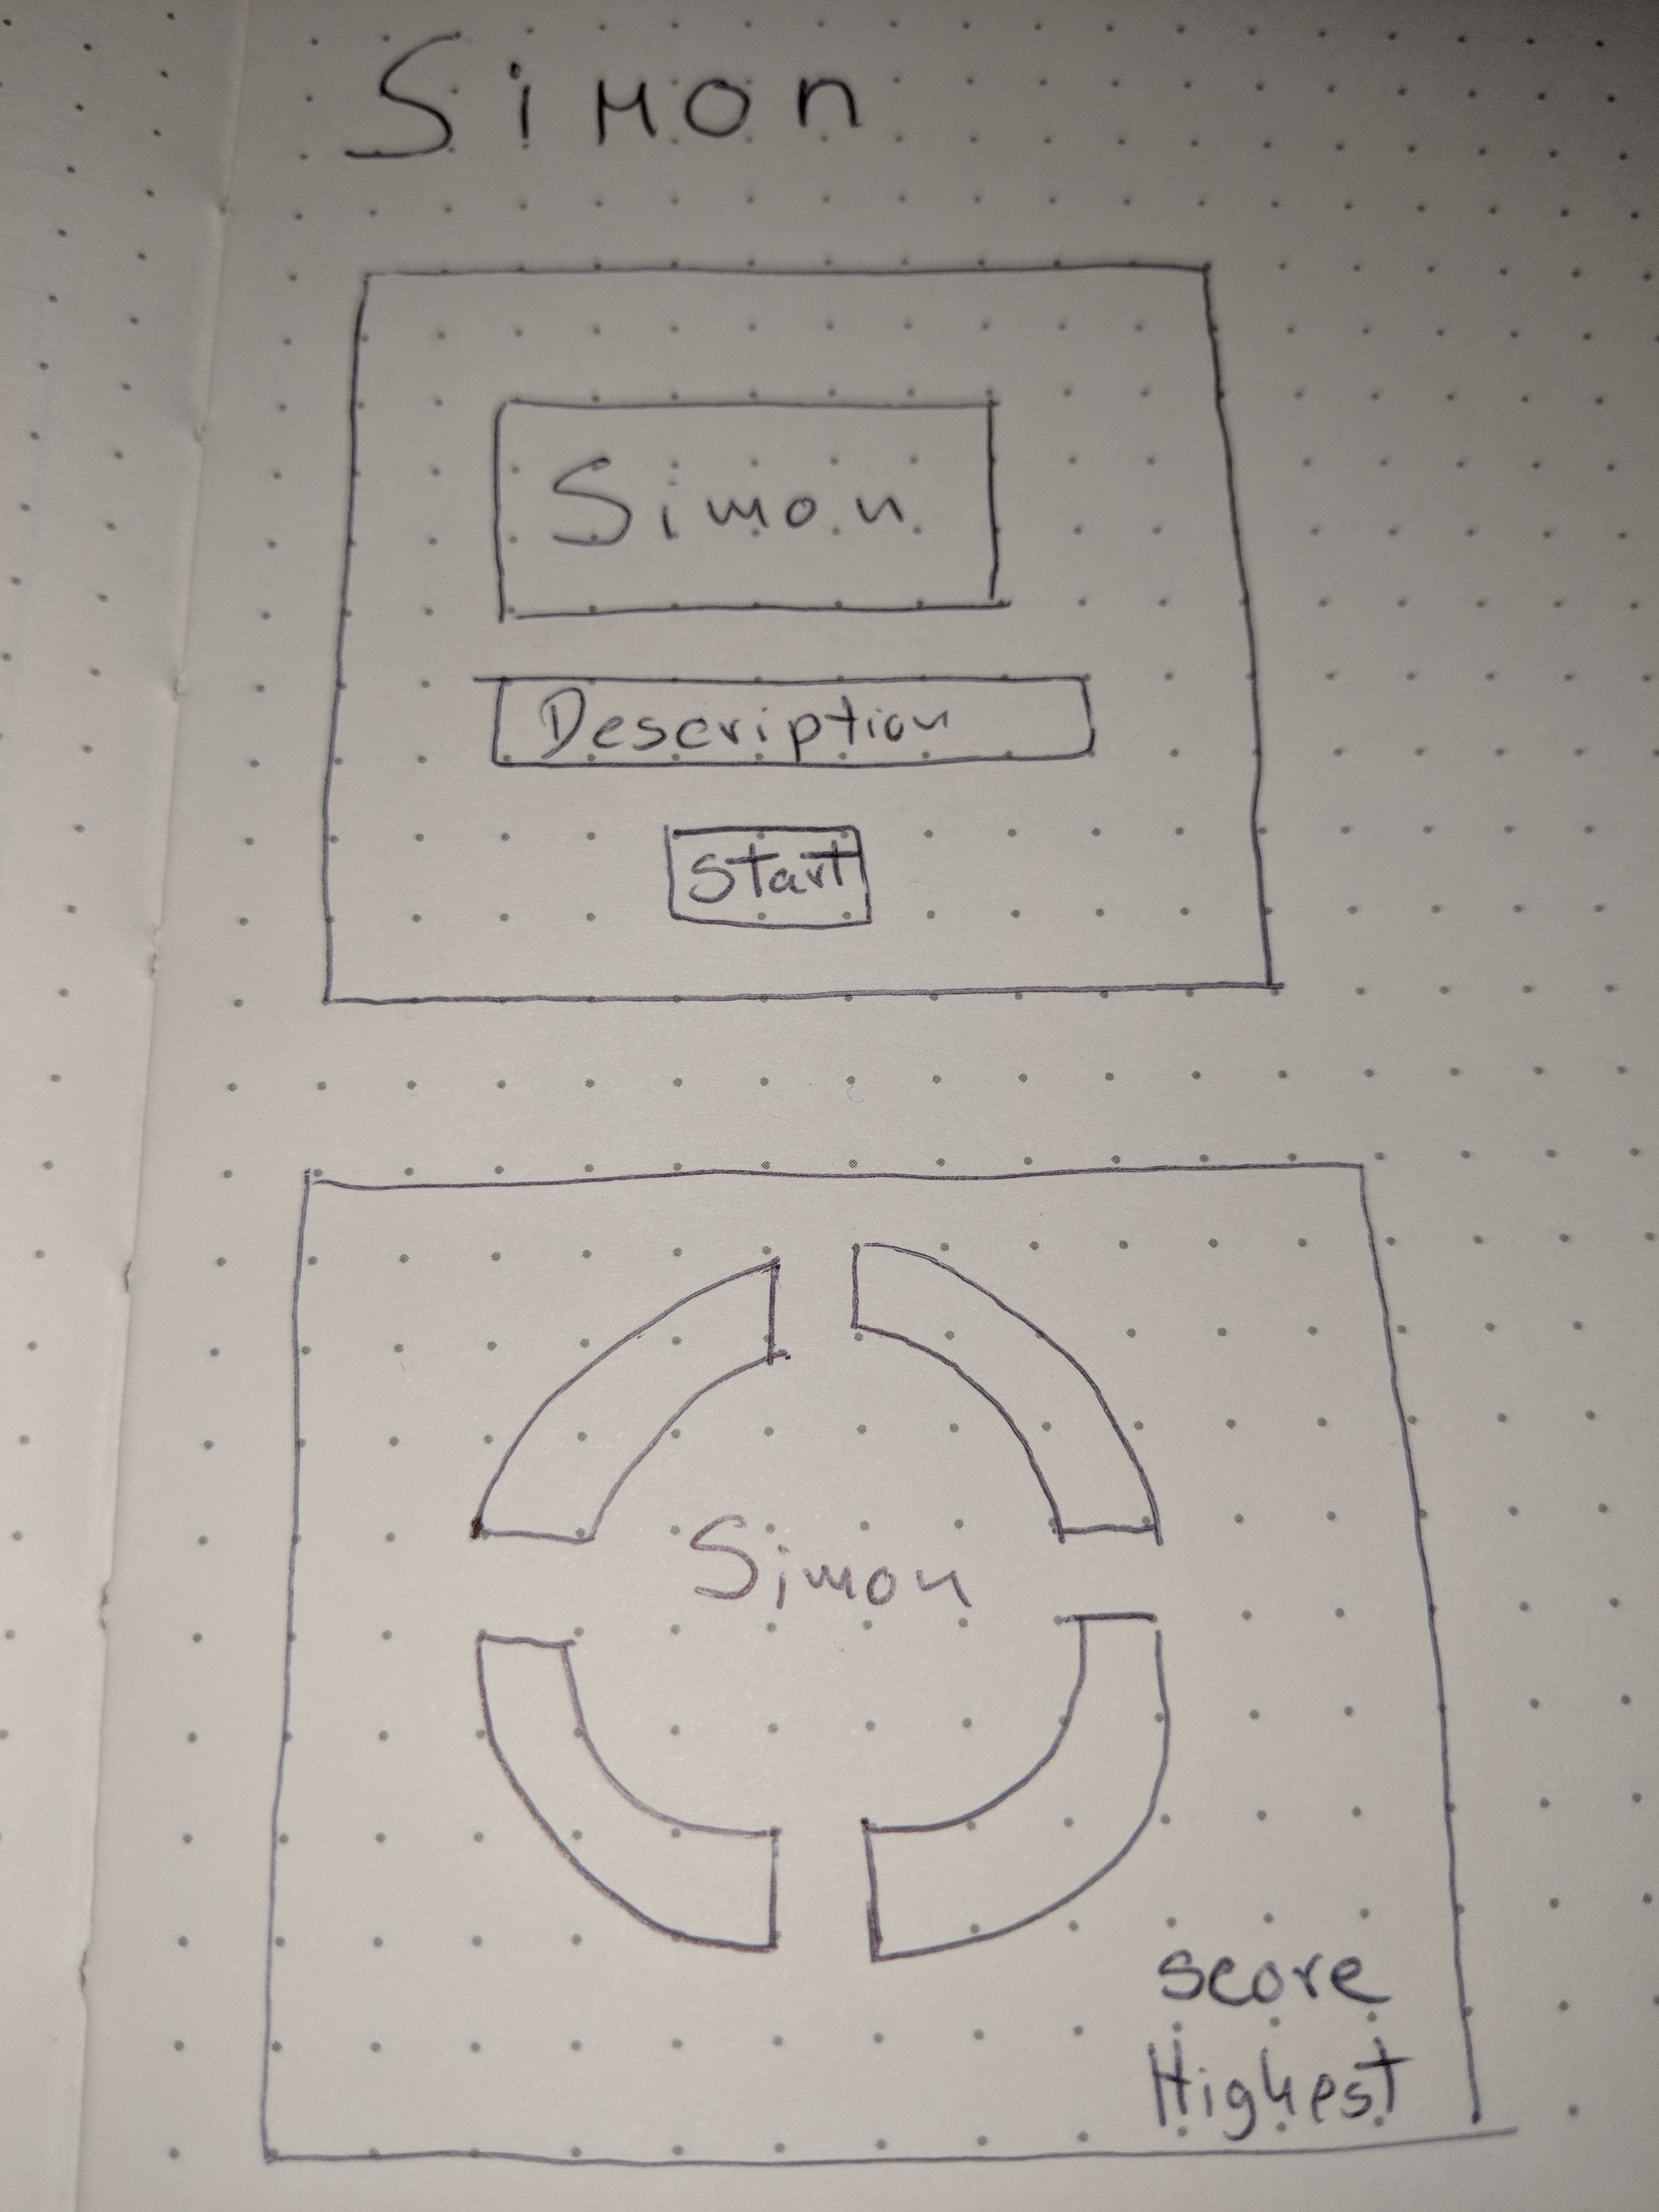 Simon
Simon
Description
Start
Simon
score
Highest